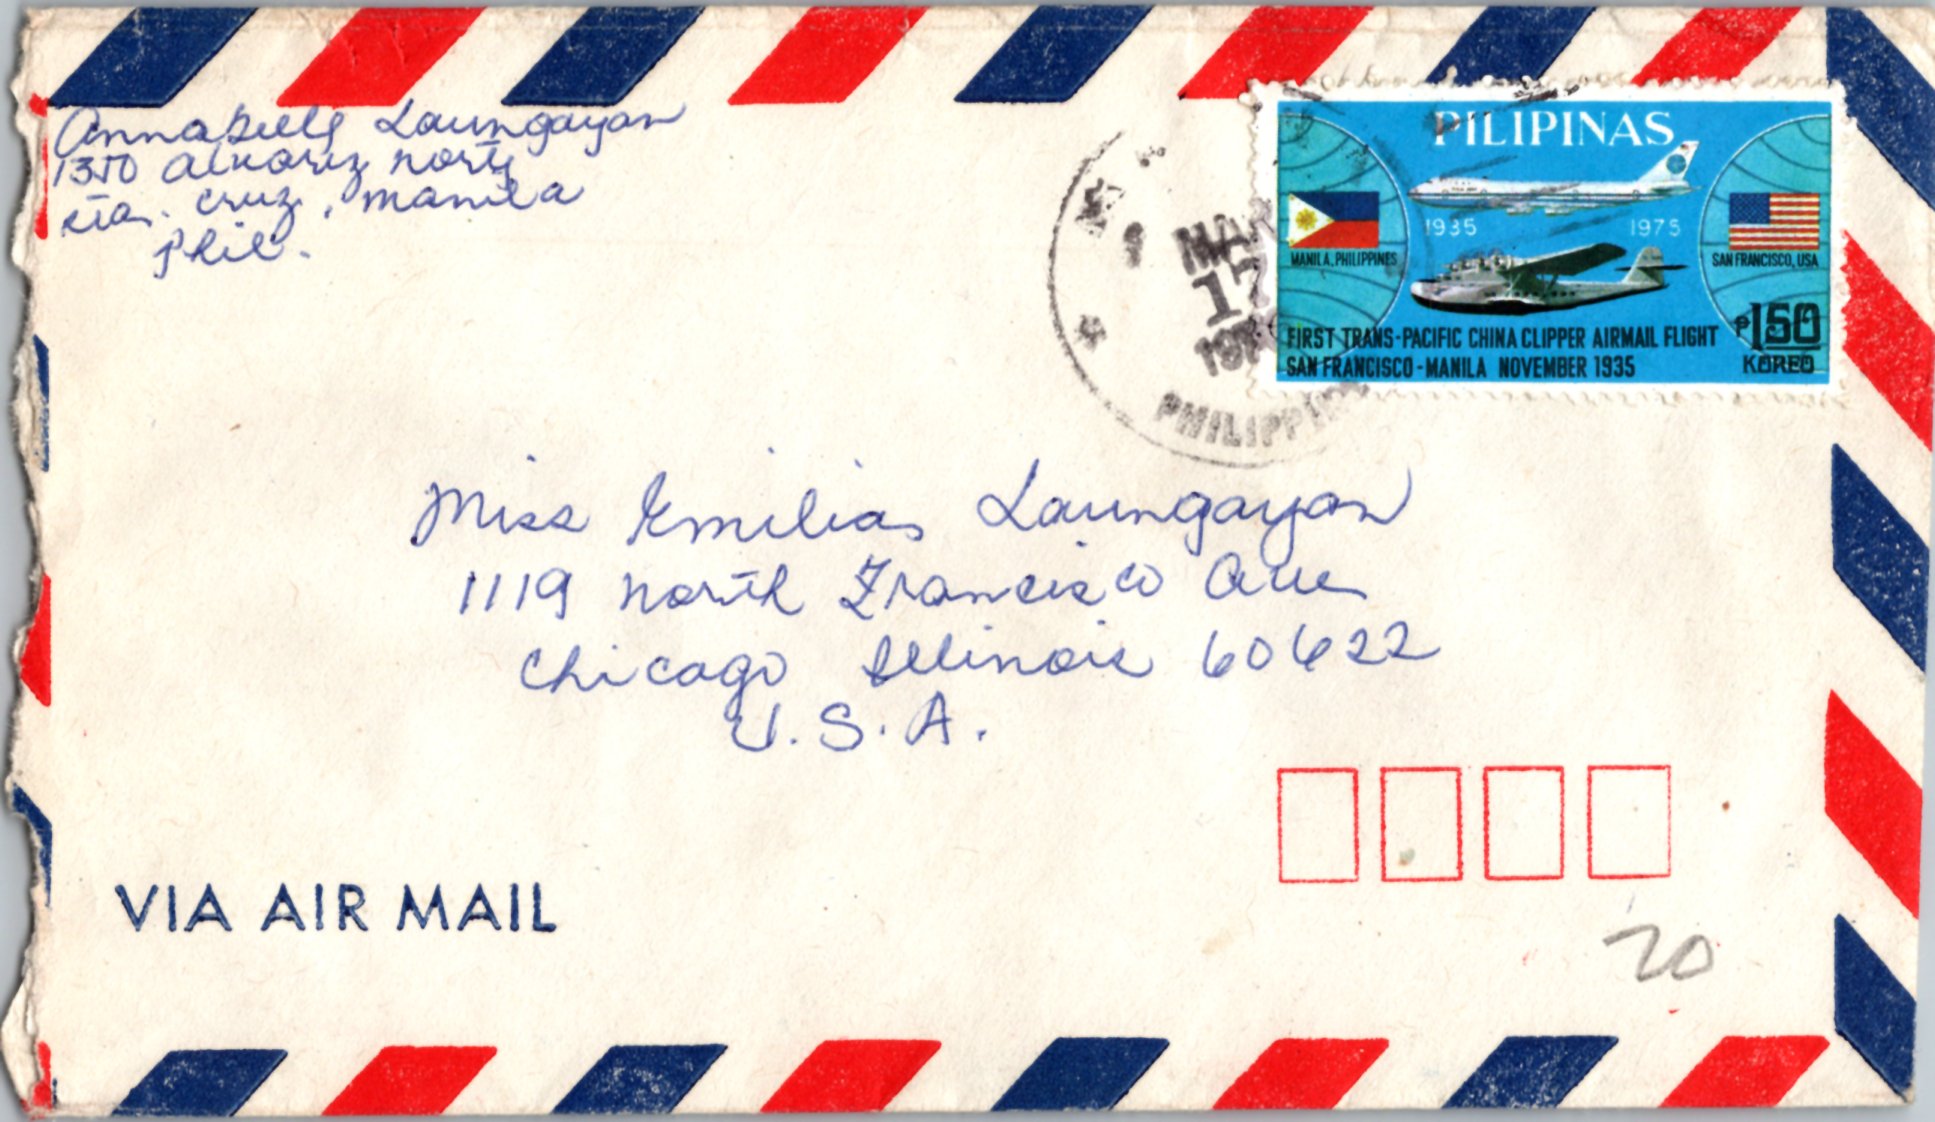 Annabelle Laungayan
1350 Alvarez North
Sta. Cruz, Manila
Phil.
MAR
17
PHILIPPIN
PILIPINAS
1935 1975
MANILA, PHILIPPINES
SAN FRANCISCO, USA
FIRST TRANS-PACIFIC CHINA CLIPPER AIRMAIL FLIGHT
SAN FRANCISCO - MANILA NOVEMBER 1935
₱1.50
KOREO
Miss Emilia Laungayan
1119 North Francisco Ave
Chicago Illinois 60622
U.S.A.
VIA AIR MAIL
20